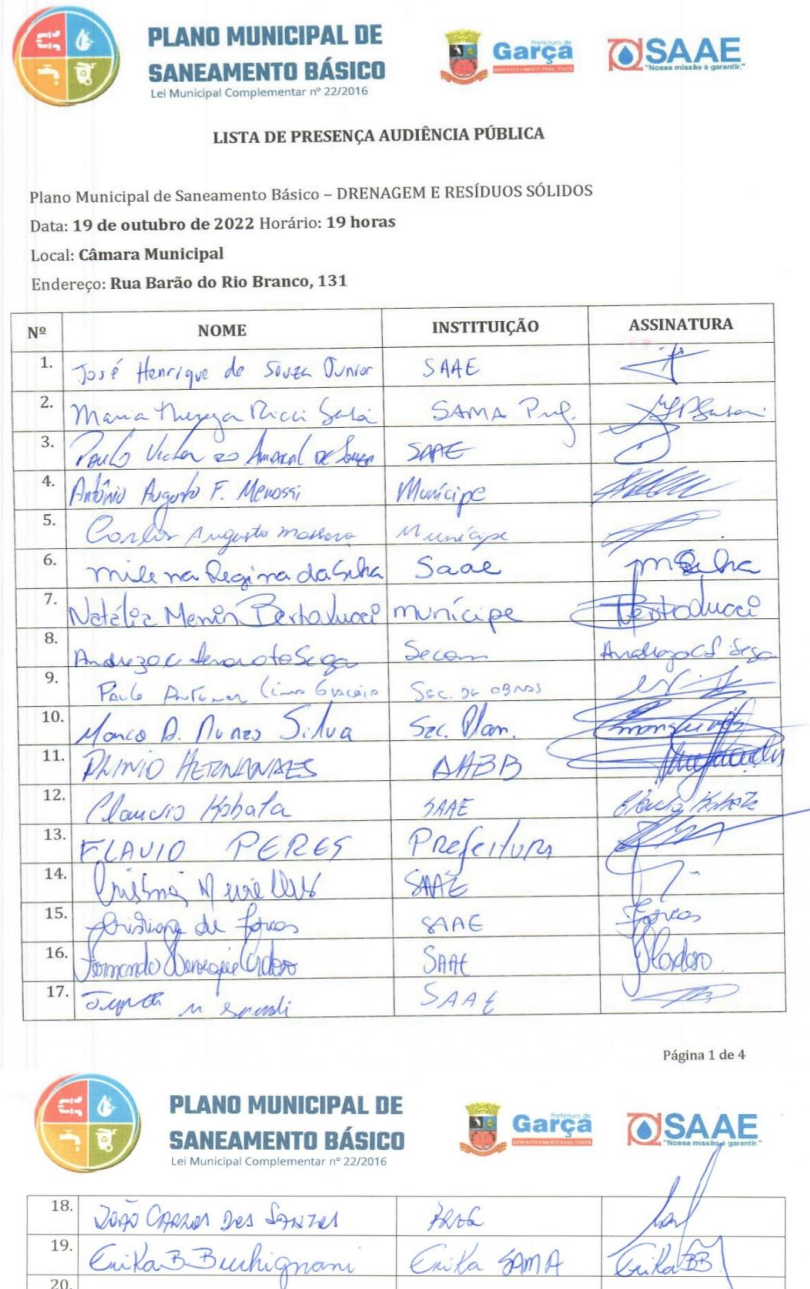 PLANO MUNICIPAL DE
SANEAMENTO BÁSICO
Lei Municipal Complementar nº 22/2016
Prefeitura de
Garça
SAAE
"Nossa missão é garantir."
LISTA DE PRESENÇA AUDIÊNCIA PÚBLICA
Plano Municipal de Saneamento Básico – DRENAGEM E RESÍDUOS SÓLIDOS
Data: 19 de outubro de 2022 Horário: 19 horas
Local: Câmara Municipal
Endereço: Rua Barão do Rio Branco, 131
Nº NOME INSTITUIÇÃO ASSINATURA
1. José Henrique de Souza Junior SAAE
2. Maria Ricci SAMA
3. Paulo Victor do Amaral de Souza SAAE
4. Antônio Augusto F. Menossi Munícipe
5. Carlos Augusto Munícipe
6. Milena Regina da Silha Saae
7. Natália Menin Bertolucci munícipe Bertolucci
8. Secom
9. Paulo Lima Sec. de obras
10. Marco A. Nunes Silva Sec. Plan.
11. PLINIO HERNANDES AABB
12. Claudio Kobata SAAE
13. FLAVIO PERES Prefeitura
14. SAAE
15. de SAAE
16. Fernando Henrique Cardoso SAAE
17. SAAE
Página 1 de 4
PLANO MUNICIPAL DE
SANEAMENTO BÁSICO
Lei Municipal Complementar nº 22/2016
Prefeitura de
Garça
SAAE
"Nossa missão é garantir."
18. João Carlos dos Santos
19. Erika B Buchignani Erika SAMA Erika BB
20.